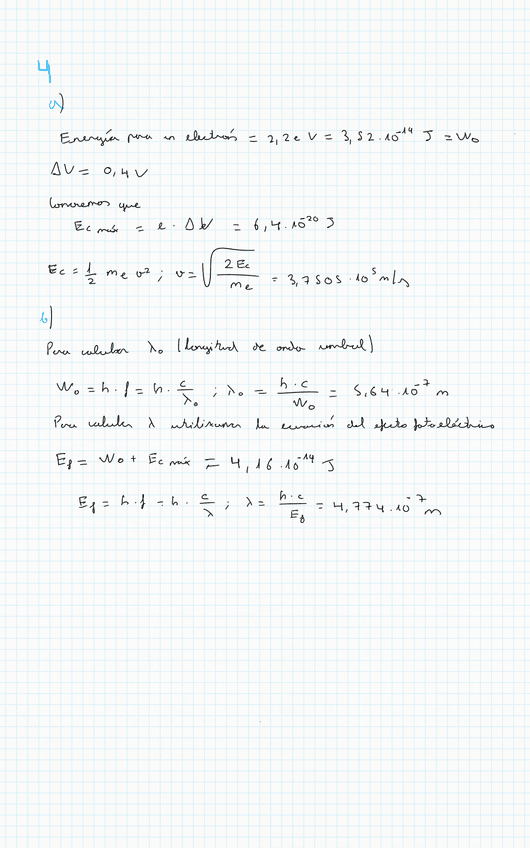 4
a)
Energía para un electrón = 2,2 e V = 3,52 · 10⁻¹⁹ J = W₀
ΔV = 0,4 V
Conocemos que
Ec máx = e · ΔV = 6,4 · 10⁻²⁰ J
Ec = 1/2 me v² ; v = √(2Ec/me) = 3,7505 · 10⁵ m/s
b)
Para calcular λ₀ (longitud de onda umbral)
W₀ = h · f = h · c/λ₀ ; λ₀ = h · c/W₀ = 5,64 · 10⁻⁷ m
Para calcular λ utilizamos la ecuación del efecto fotoeléctrico
Ef = W₀ + Ec máx = 4,16 · 10⁻¹⁹ J
Ef = h · f = h · c/λ ; λ = h · c/Ef = 4,774 · 10⁻⁷ m